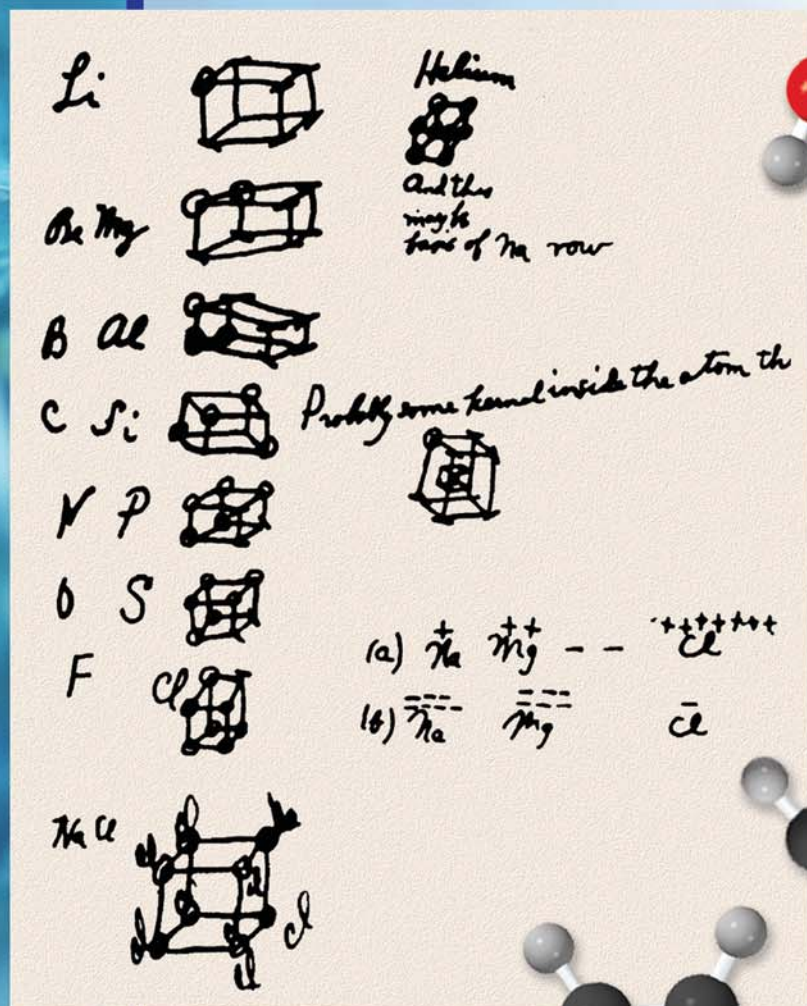 Li
Helium
And this
may be
basis of Na row
Be Mg
B Al
C Si
Probably some kernel inside the atom th
N P
O S
F Cl
(a) Na + Mg ++ - - Cl +++++++
(b) Na Mg Cl -
Na Cl
Cl